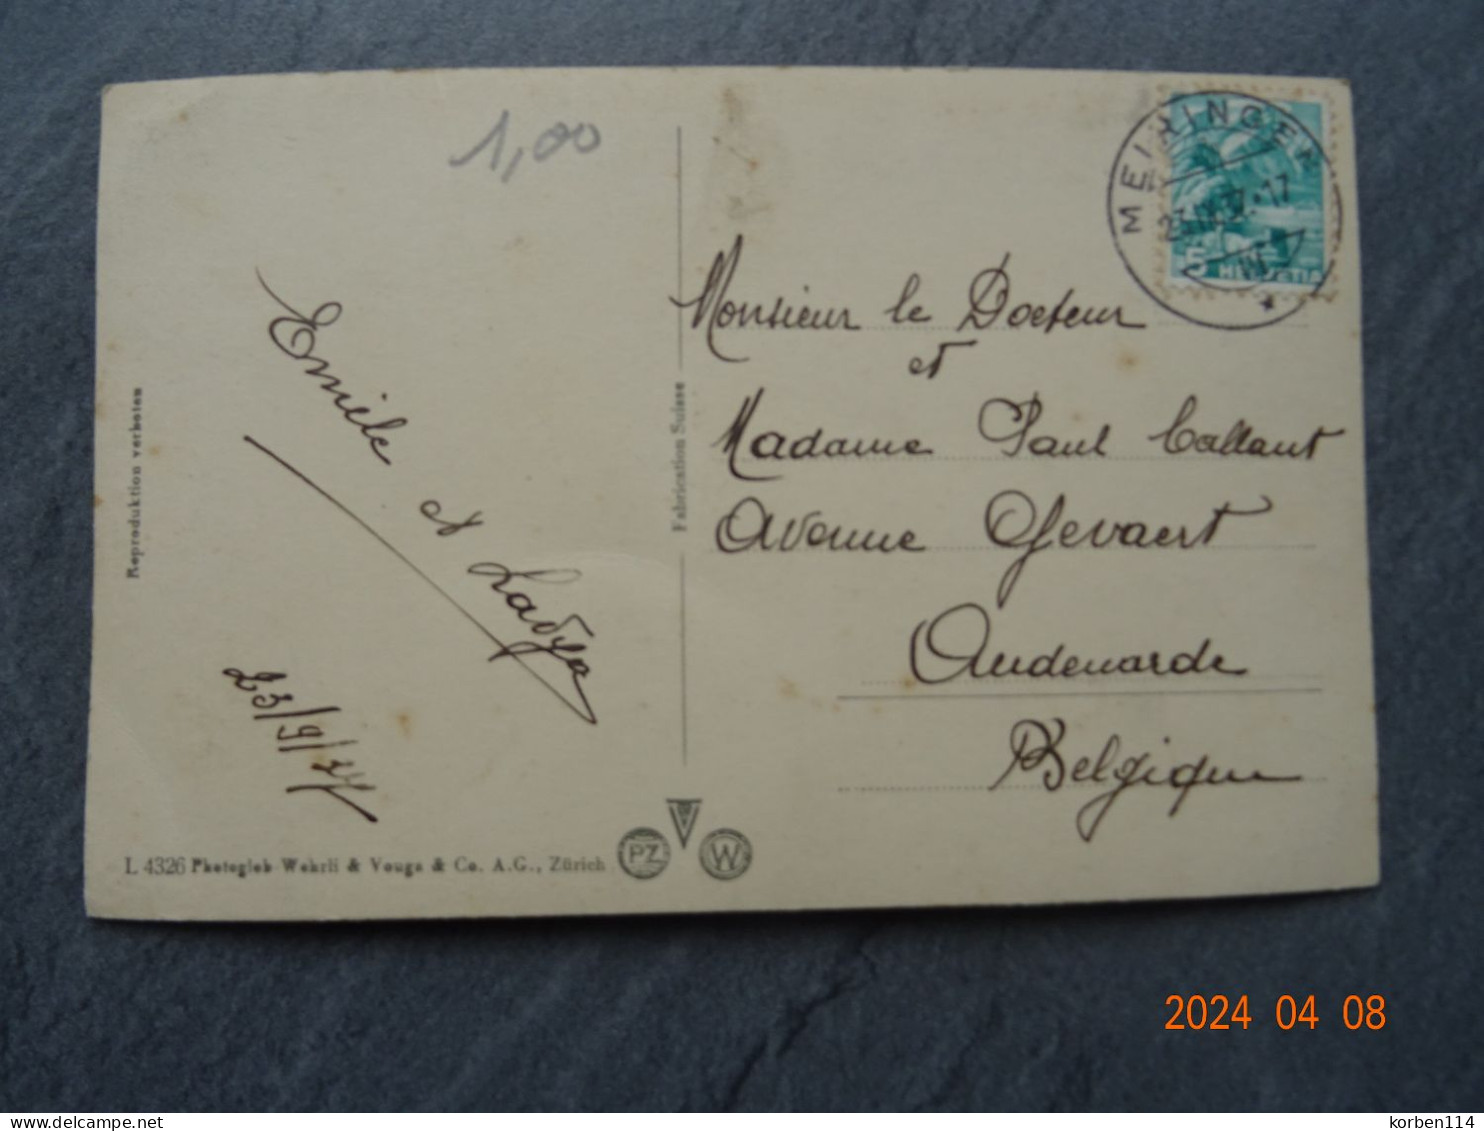 1,00
MEIRINGEN
23.IX.37.-17
W
5
HELVETIA
Monsieur le Docteur
et
Madame Paul Callant
Avenue Gevaert
Audenarde
Belgique
Emile
et
Ladya
23/9/37
Reproduktion verboten
Fabrication Suisse
L 4326 Photoglob Wehrli & Vouga & Co. A.G., Zürich
PZ
W
2024 04 08
korben114